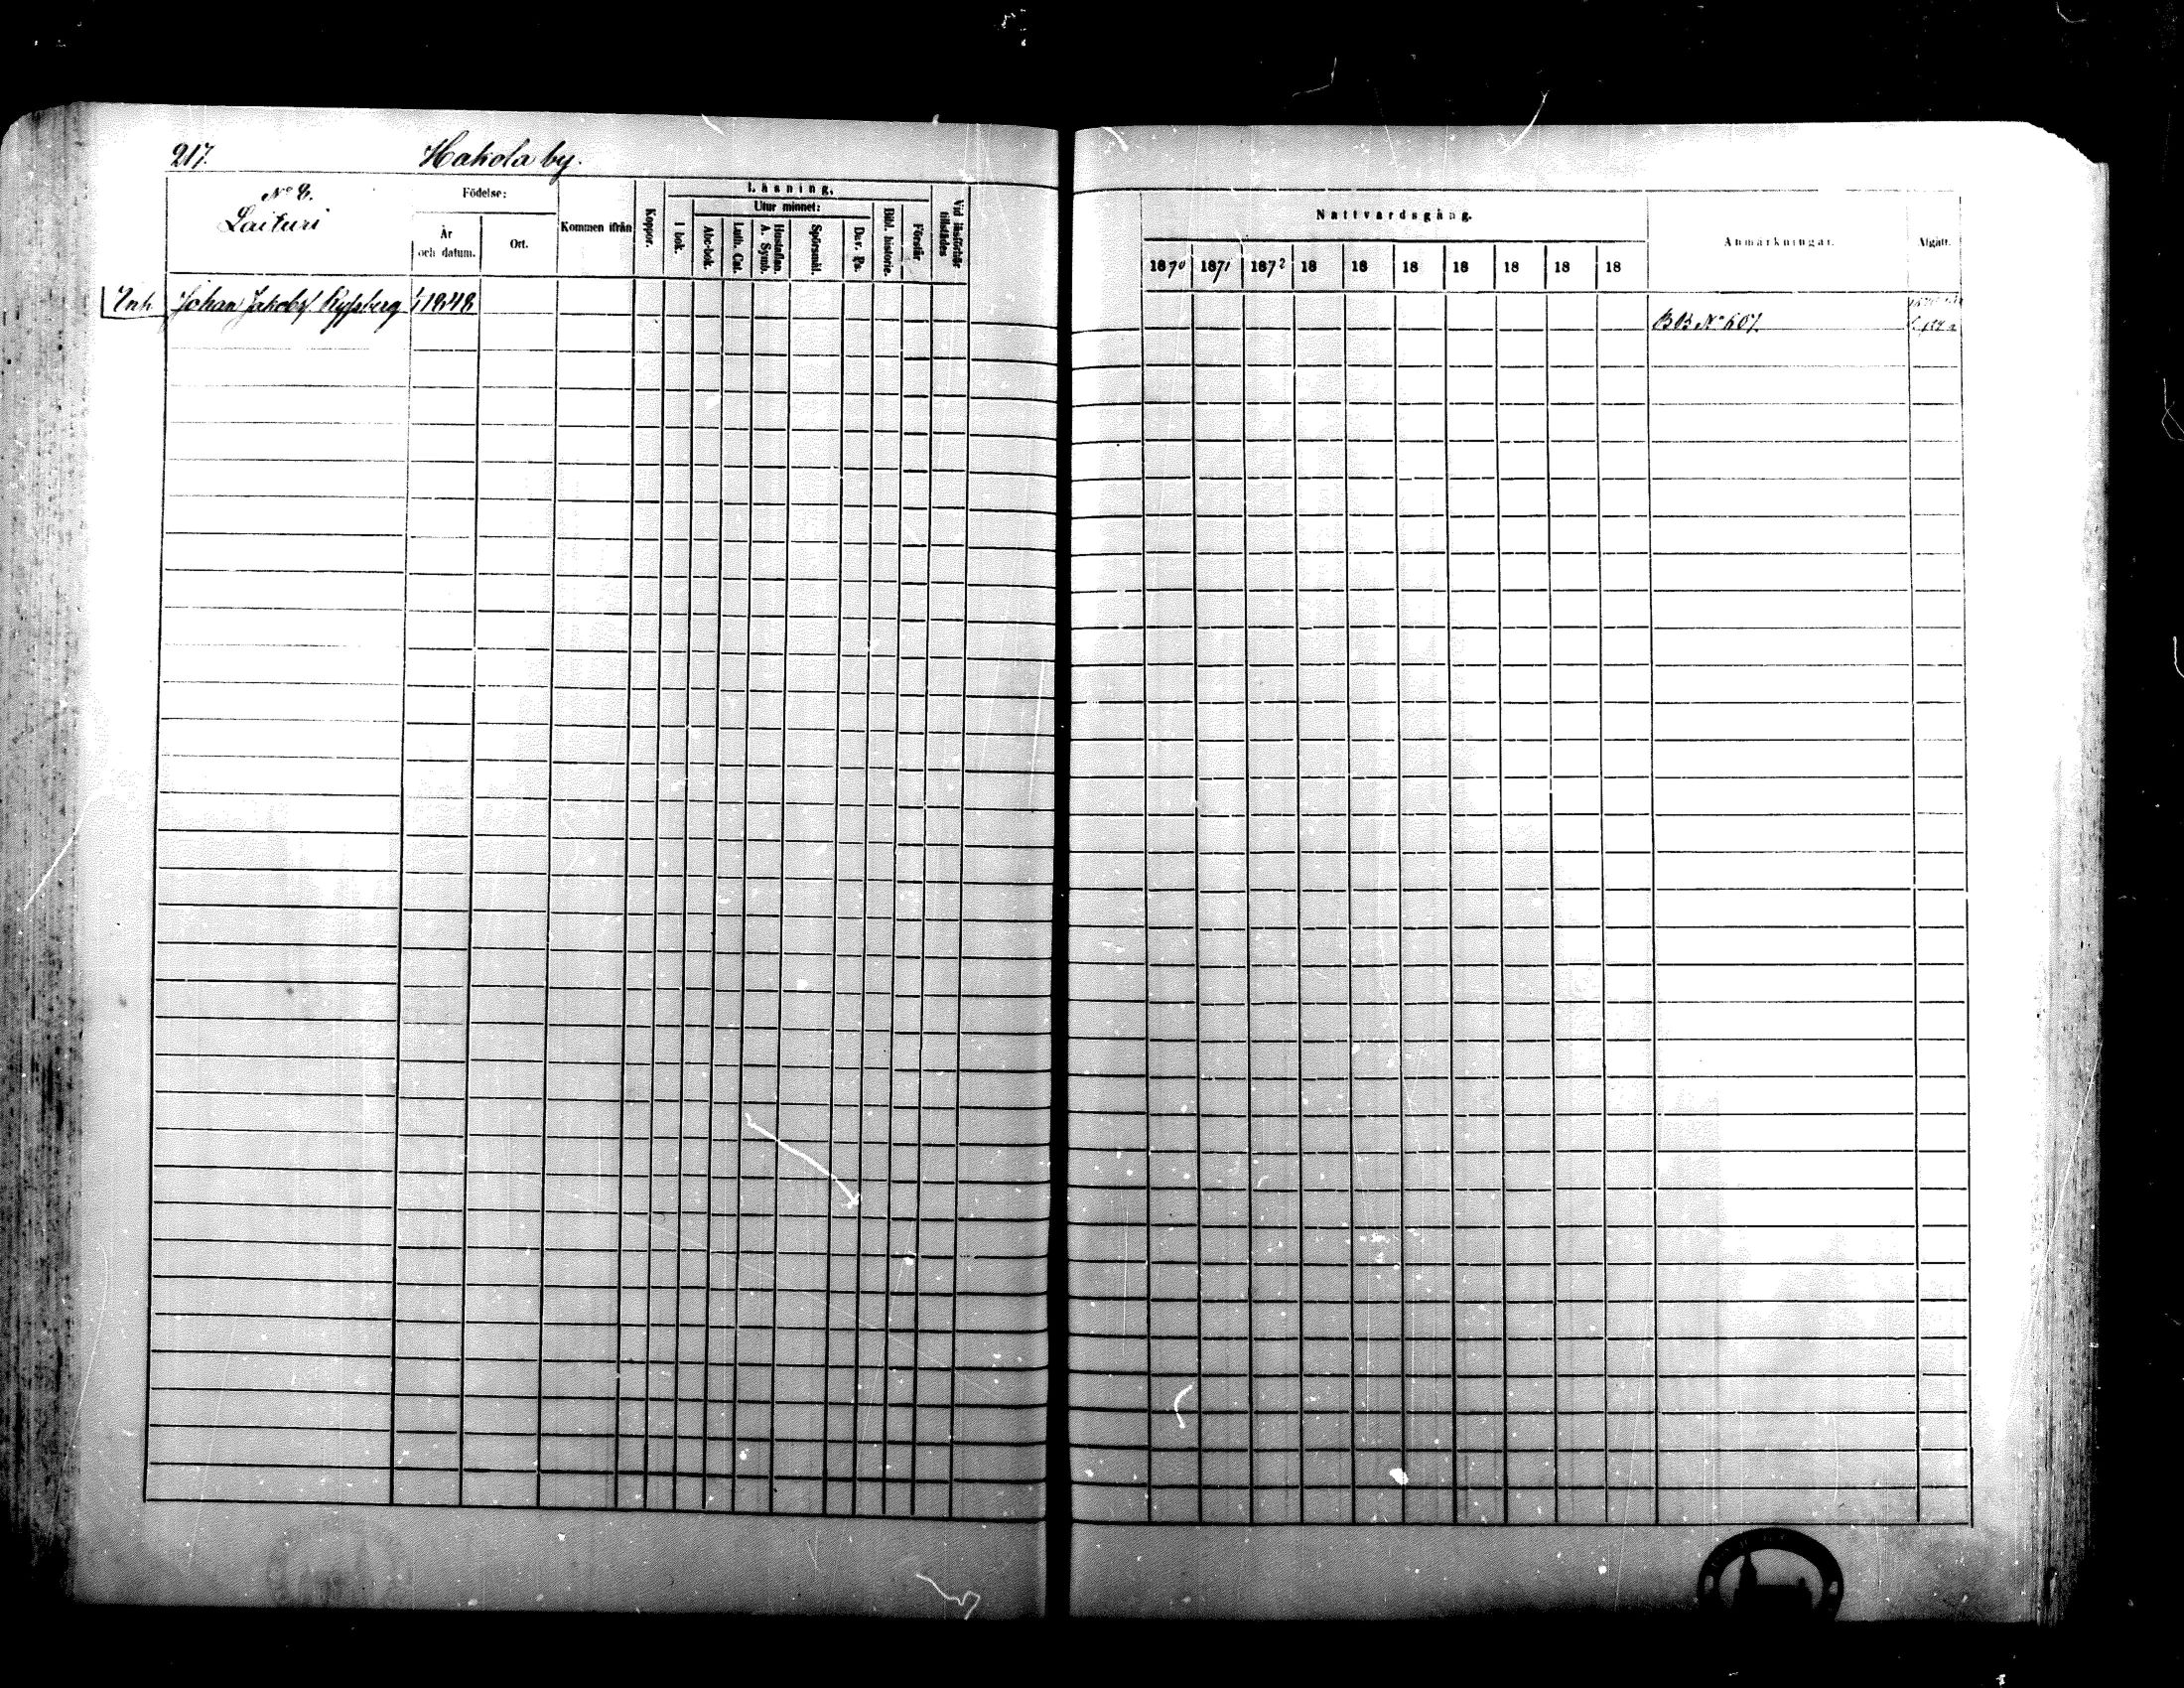 217. Hakola by.
No 8.
Laituri
Födelse:
År
och datum.
Ort.
Kommen ifrån
Koppor.
Läsning.
I bok.
Utur minnet:
Abc-bok.
Luth. Cat.
Hustaflan.
A. Symb.
Spörsmål.
Dav. Ps.
Bibl. historie.
Förstår
Vid läsförhör
tillstädes
Nattvardsgång.
1870 1871 1872 18 18 18 18 18 18 18
Anmärkningar.
Afgått.
Inh. Johan Jakobsf. 1848
BOB No 607.